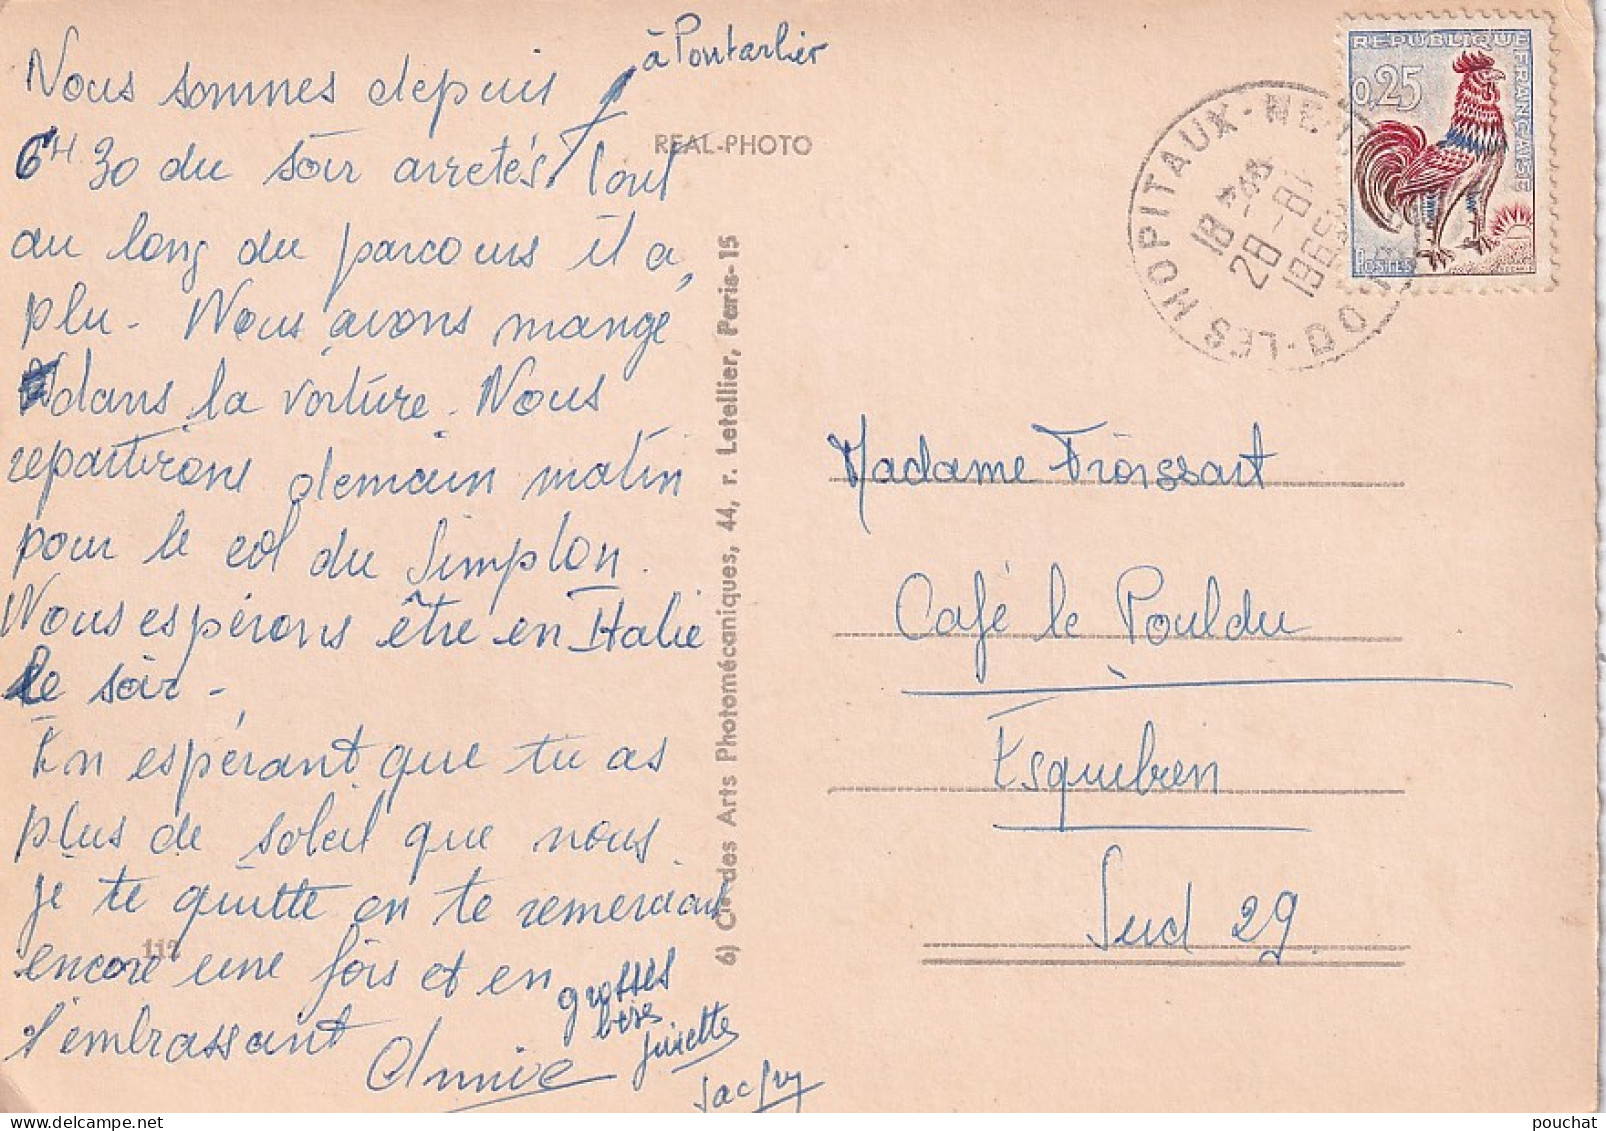 à Pontarlier
Nous sommes depuis
6H30 du soir arretés. Tout
au long du parcours il a
plu. Nous avons mangé
dans la voiture. Nous
repartirons demain matin
pour le col du Simplon.
Nous espérons être en Italie
le soir.
En espérant que tu as
plus de soleil que nous.
je te quitte en te remerciant
encore une fois et en
t'embrassant
Annie
grosses
bises
Jacquy
112
REAL-PHOTO
6) Cie des Arts Photomécaniques, 44, r. Letellier, Paris-15
REPUBLIQUE FRANÇAISE
0,25
POSTES
LES HOPITAUX-NE
DOUBS
18
28 -8
196
Madame Froissart
Café le Pouldu
à
Esquibien
Sud 29.
pouchat